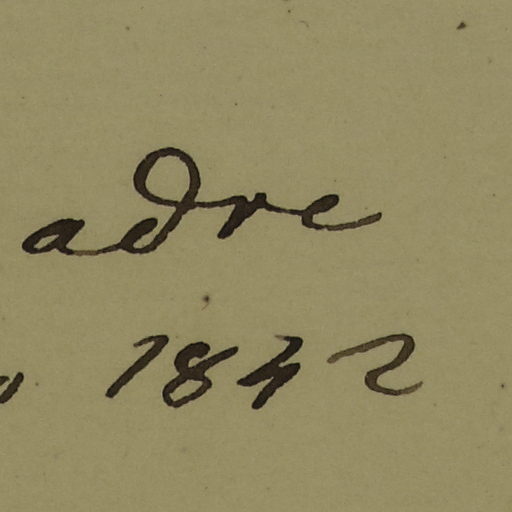 adre
1842